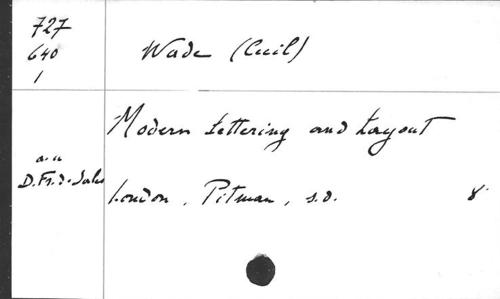 727
640
1
Wade (Cecil)
Modern Lettering and Layout
a.u
D.Fr.d.Sales
London, Pitman, s.d. 8°